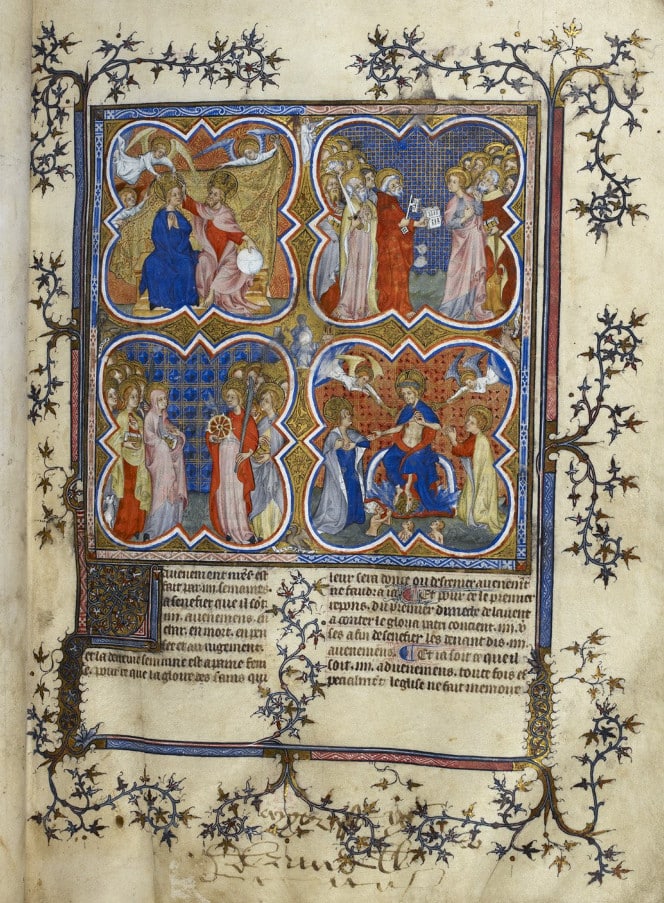 auenement nr̃e s̃ est
fait par .iiii. semaines
a senefier que il sōt
.iiii. auenemens, en
char, en mort, en pen
see et au iugement.
et la derreine semaine est a paine fenie
pour ce que la gloire des sains qui
leur sera donee ou derrenier auenemẽt
ne faudra ia. Et pour ce le premier
respons, du premier dimenche de lauent
a conter le gloria patri contient .iiii. v̾
ses afin de senefier les deuant dis .iiii.
auenemens. Et ia soit ce que il
soit .iiii. aduenemens, toute fois es
pecialmẽt leglise ne fait memoire